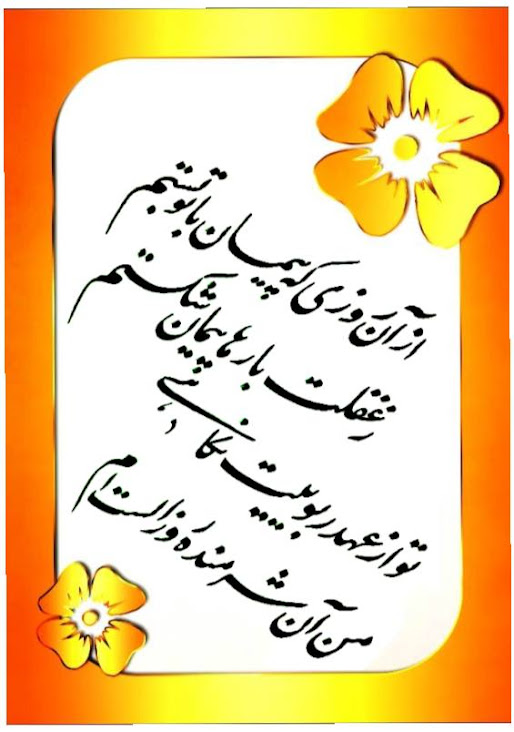 از آن روزی که پیمان با تو بستم
ز غفلت بارها پیمان شکستم
تو از عهد ربوبیت نکاهی
من آن شرمنده روز الستم